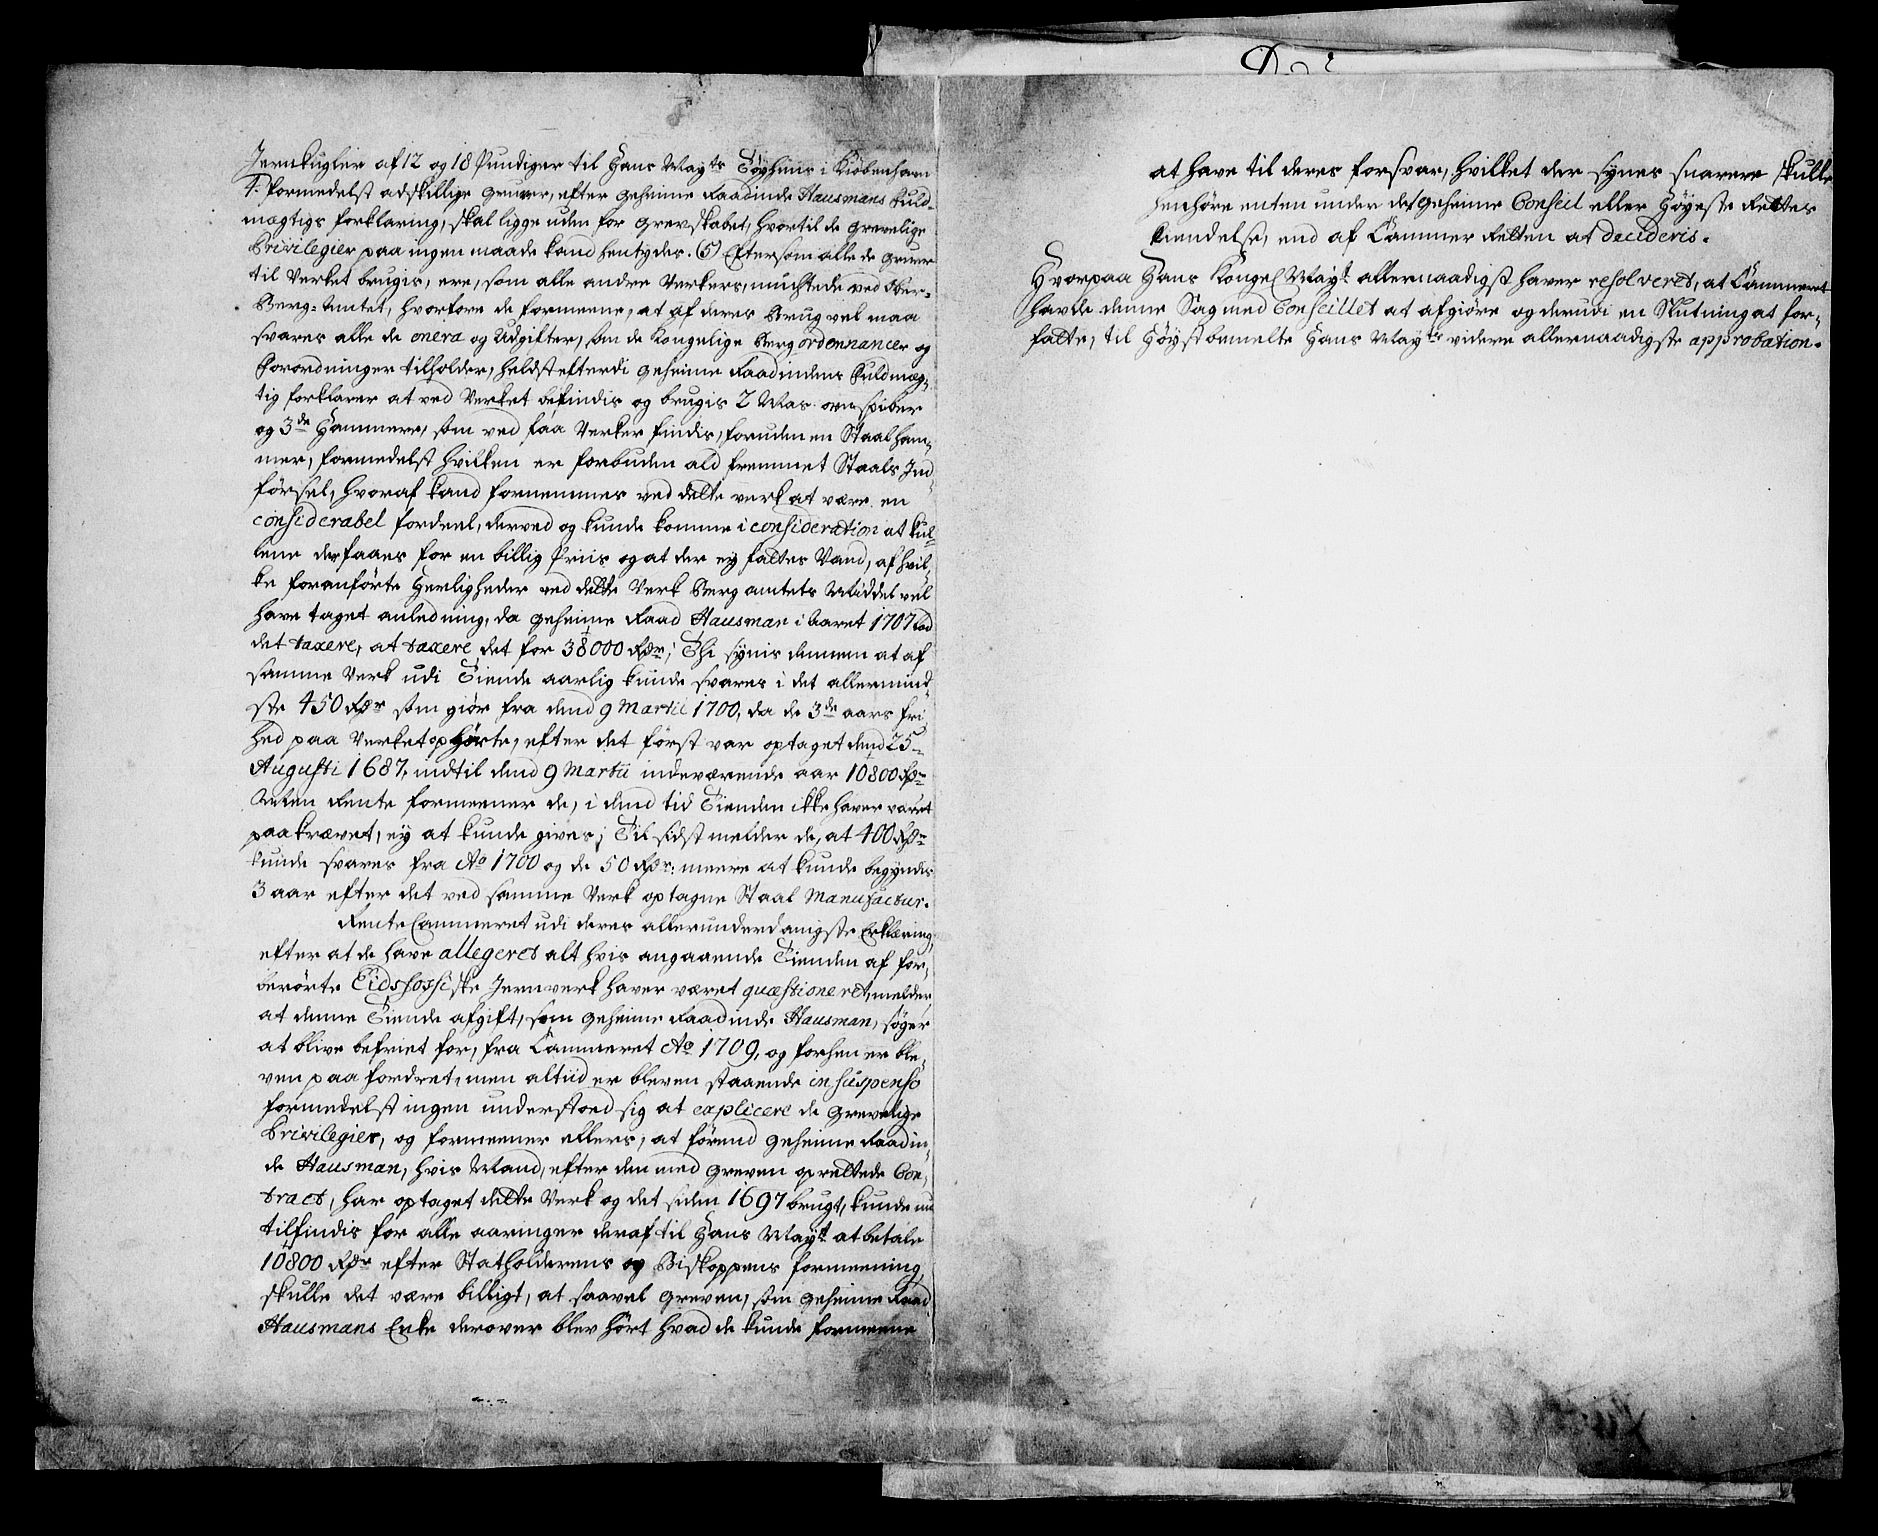 Jernkugler af 12 og 18 Pundiger til Hans Mayts Töyhuus i Kiöbenhavn
4. formedelst adskillige gruver, efter geheime Raadinde Hausmans fuld-
mægtigs forklaring, skal ligge uden for grevskabet, hvortil de grevelige
Privilegier paa ingen maade kand hentydes. (5) Eftersom alle de gruver
til Verket brugis, ere, som alle andre Verkers, muthede ved Ober-
Berg-Amtet, hvorfore de formeene, at af deres Brug vel maa
svares alle de onera og Udgifter, som de Kongelige Berg ordonnancer og
Forordninger tilholder, heldst efterdi geheime Raadindens fuldmæg-
tig forklarer at ved Verket befindis og brugis 2 Mas ovnspiber
og 3de Hammere, som ved faa Verker findis, foruden en Staalham-
mer, formedelst hvilken er forbuden ald fremmet Staals Ind-
försel, hvoraf kand fornemmes ved dette verk at være en
considerabel fordeel, derved og kunde komme i consideration at kul-
lene der faaes for en billig Priis og at der ey fattes Vand, af hvil-
ke foranförte Herligheder ved dette Verk Berg amtets Middel vel
have taget anledning, da geheime Raad Hausman i Aaret 1707 lod
det taxere, at taxere det for 38000 Rdr; Thi synis dennem at af
samme Verk udi Tiende aarlig kunde svares i det allermind-
ste 450 Rdr som giör fra dend 9 Martii 1700, da de 3de aars fri-
hed paa Verket ophörte, efter det först var optaget dend 25
Augusti 1687, indtil dend 9 Martii indeværende aar 10800 Rdr
Men Rente formeener de, i dend tid Tienden ikke haver været
paakrævet, ey at kunde gives; Til sidst melder de, at 400 Rdr
kunde svares fra Ao 1700 og de 50 Rdr: meere at kunde begyndes
3 aar efter det ved samme Verk optagne Staal Manufactur.
Rente Cammeret udi deres allerunderdanigste Erklæring,
efter at de have allegeret alt hvis angaaende Tienden af for-
berörte Eidsfossiske Jernverk haver været quæstioneret, melder,
at denne Tiende afgift, som geheime Raadinde Hausman, söger
at blive befriet for, fra Cammeret Ao 1709, og forhen er ble-
ven paafordret, men altiid er bleven staaende in suspenso
formedelst ingen understoed sig at explicere de grevelige
Privilegier, og formeener ellers, at förend geheime Raadin-
de Hausman, hvis Mand, efter den med greven oprettede Con-
tract, har optaget dette Verk og det siden 1697 brugt, kunde nu
tilfindis for alle aaringer deraf til Hans Mayt at betale
10800 Rdr efter Statholderens og Biskoppens formeening,
skulle det være billigt, at saavel greven, som geheime Raad
Hausmans Enke derover blev hört hvad de kunde formeene
at have til deres forsvar, hvilket der synes snarere skulle
henhöre enten under det geheime Conseil eller Höyeste Rettes
kiendelse, end af Cammer Retten at decideris.
Hvorpaa Hans Kongel Mayt allernaadigst haver resolveret, at Cammeret
havde denne Sag med Conseillet at afgiöre og derudi en Slutning at for-
fatte, til Höystbemelte Hans Mayts videre allernaadigste approbation.